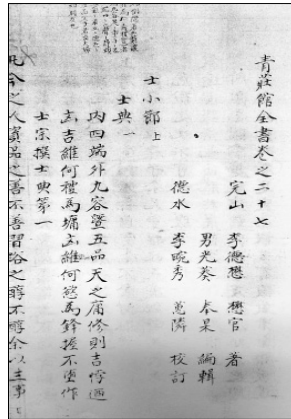 青莊館全書卷之二十七
完山 李德懋 懋官 著
男光葵 奉杲 編輯
德水 李畹秀 蕙隣 校訂
士小節 上
士典 一
內四端外九容曁五品天之庸修則吉悖迺
凶吉維何禮馬墉凶維何慾馬鋒握不墮作
士宗撰士典第一
凡今之人資品之善不善習俗之醇不醇余以主事